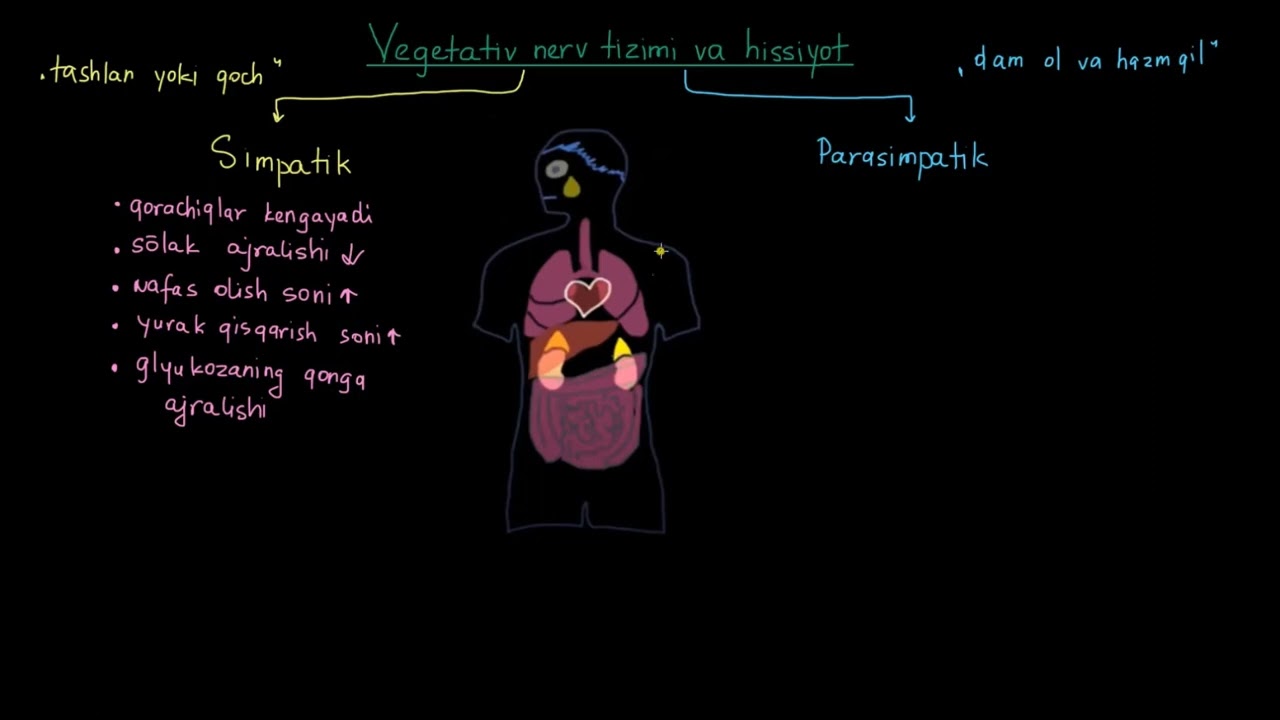 Vegetativ nerv tizimi va hissiyot
„tashlan yoki qoch"
„dam ol va hazm qil"
Simpatik
Parasimpatik
• qorachiqlar kengayadi
• sōlak ajralishi ↓
• nafas olish soni ↑
• yurak qisqarish soni ↑
• glyukozaning qonga
ajralishi